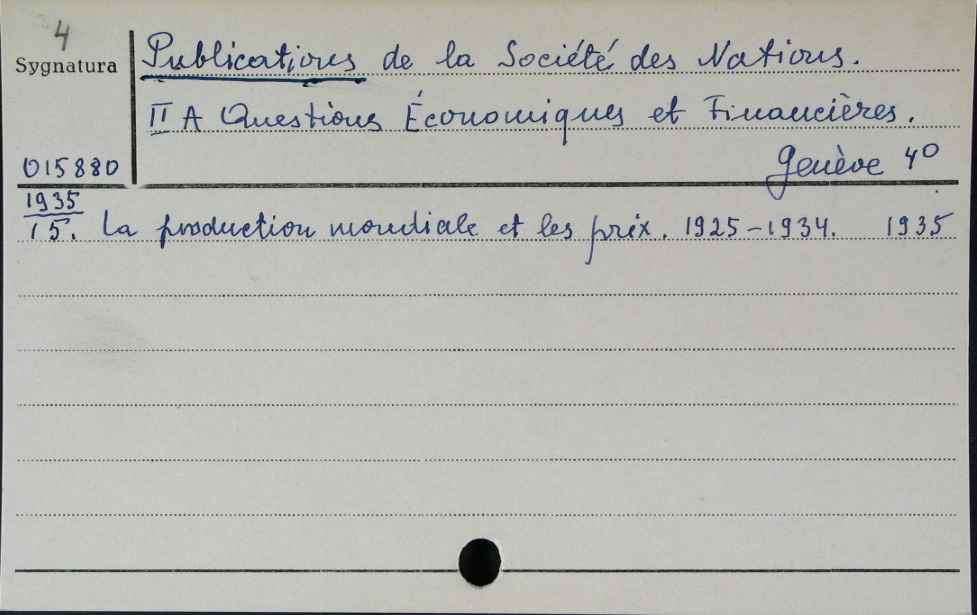 4
Sygnatura
Publications de la Société des Nations.
II A Questions Économiques et Financières.
015880
Genève 4°
1935
15. La production mondiale et les prix. 1925-1934. 1935